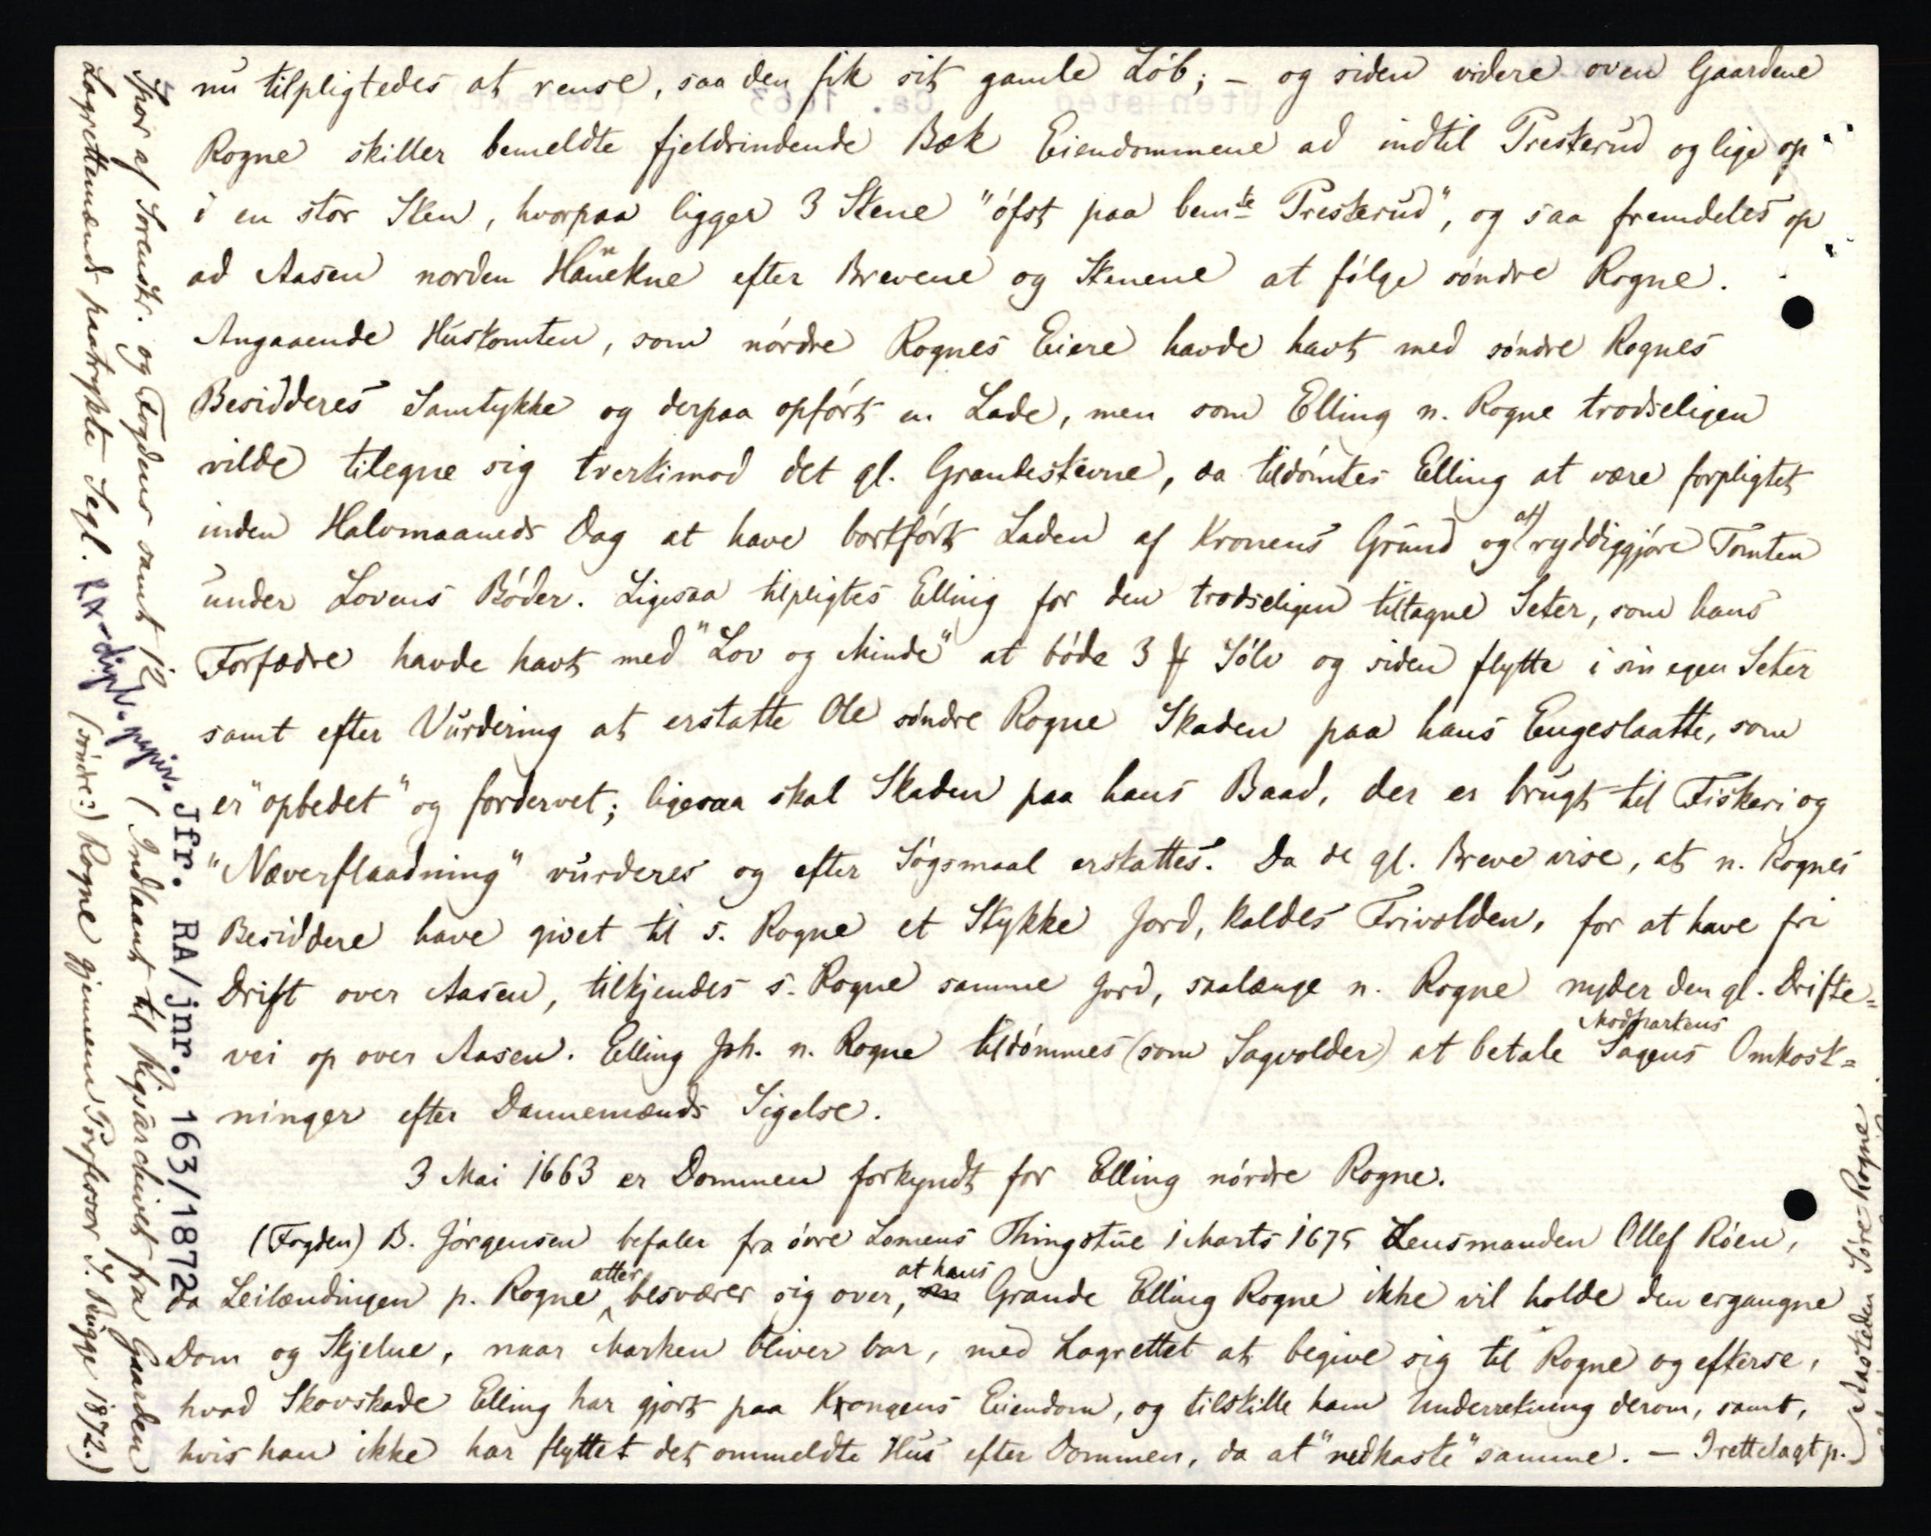 nu tilpligtedes at rense, saa den fik sit gamle Løb; – og siden videre oven Gaardene
Rogne skiller bemeldte fjeldrindende Bæk Eiendommene ad indtil Presterud og lige op
i en stor Sten, hvorpaa ligger 3 Stene "øfst paa bemte Presterud", og saa fremdeles op
ad Aasen norden Haukne efter Brevene og Stenene at følge søndre Rogne.
Angaaende Hustomten, som nørdre Rognes Eiere havde havt med søndre Rognes
Besidderes Samtykke og derpaa opført en Lade, men som Elling n. Rogne trodseligen
vilde tilegne sig tvertimod det gl. Grandestevne, da tildømtes Elling at være forpligtet
inden Halvmaaneds Dag at have bortført Laden af Kronens Grund og at ryddiggjøre Tomten
under Lovens Bøder. Ligesaa tilpligtes Elling for den trodseligen tiltagne Seter, som hans
Forfædre havde havt med "Lov og Minde" at bøde 3 ℔ Sølv og siden flytte i sin egen Seter
samt efter Vurdering at erstatte Ole søndre Rogne Skaden paa hans Engeslaatte, som
er "opbedet" og fordervet; ligesaa skal Skaden paa hans Baad, der er brugt til Fiskeri og
"Næverflaadning" vurderes og efter Søgsmaal erstattes. Da de gl. Breve vise, at n. Rognes
Besiddere have givet til s. Rogne et Stykke Jord, kaldes Trivolden, for at have fri
Drift over Aasen, tilkjendes s. Rogne samme Jord, saalænge n. Rogne nyder den gl. Drifte=
vei op over Aasen. Elling Joh. n. Rogne tildømmes (som Sagvolder) at betale Modpartens Sagens Omkost=
ninger efter Dannemænds Sigelse.
3 Mai 1663 er Dommen forkyndt for Elling nørdre Rogne.
(Fogden) B. Jørgensen befaler fra øvre Lomens Thingstue 1 Marts 1675 Lensmanden Ollef Røen,
da Leilændingen p. Rogne atter besværer sig over, at hans Grande Elling Rogne ikke vil holde den ergangne
Dom og Skjelne, naar Marken bliver bar, med Lagrettet at begive sig til Rogne og efterse,
hvad Skovskade Elling har gjort paa Kongens Eiendom, og tilskille ham Underretning derom, samt,
hvis han ikke har flyttet det ommeldte Hus efter Dommen, da at "nedkaste" samme. – Irettelagt p.
Aasteden Søre-Rogne
Spor af Sorenskr. og Fogdens samt 12
Lagrettemænds paatrykte Segl. RA-dipl. papir. (Indlaant til Rigsarchivet fra Gaarden
(søndre?) Rogne gjennem Professor S. Bugge 1872.)
Jfr. RA/jnr. 163/1872